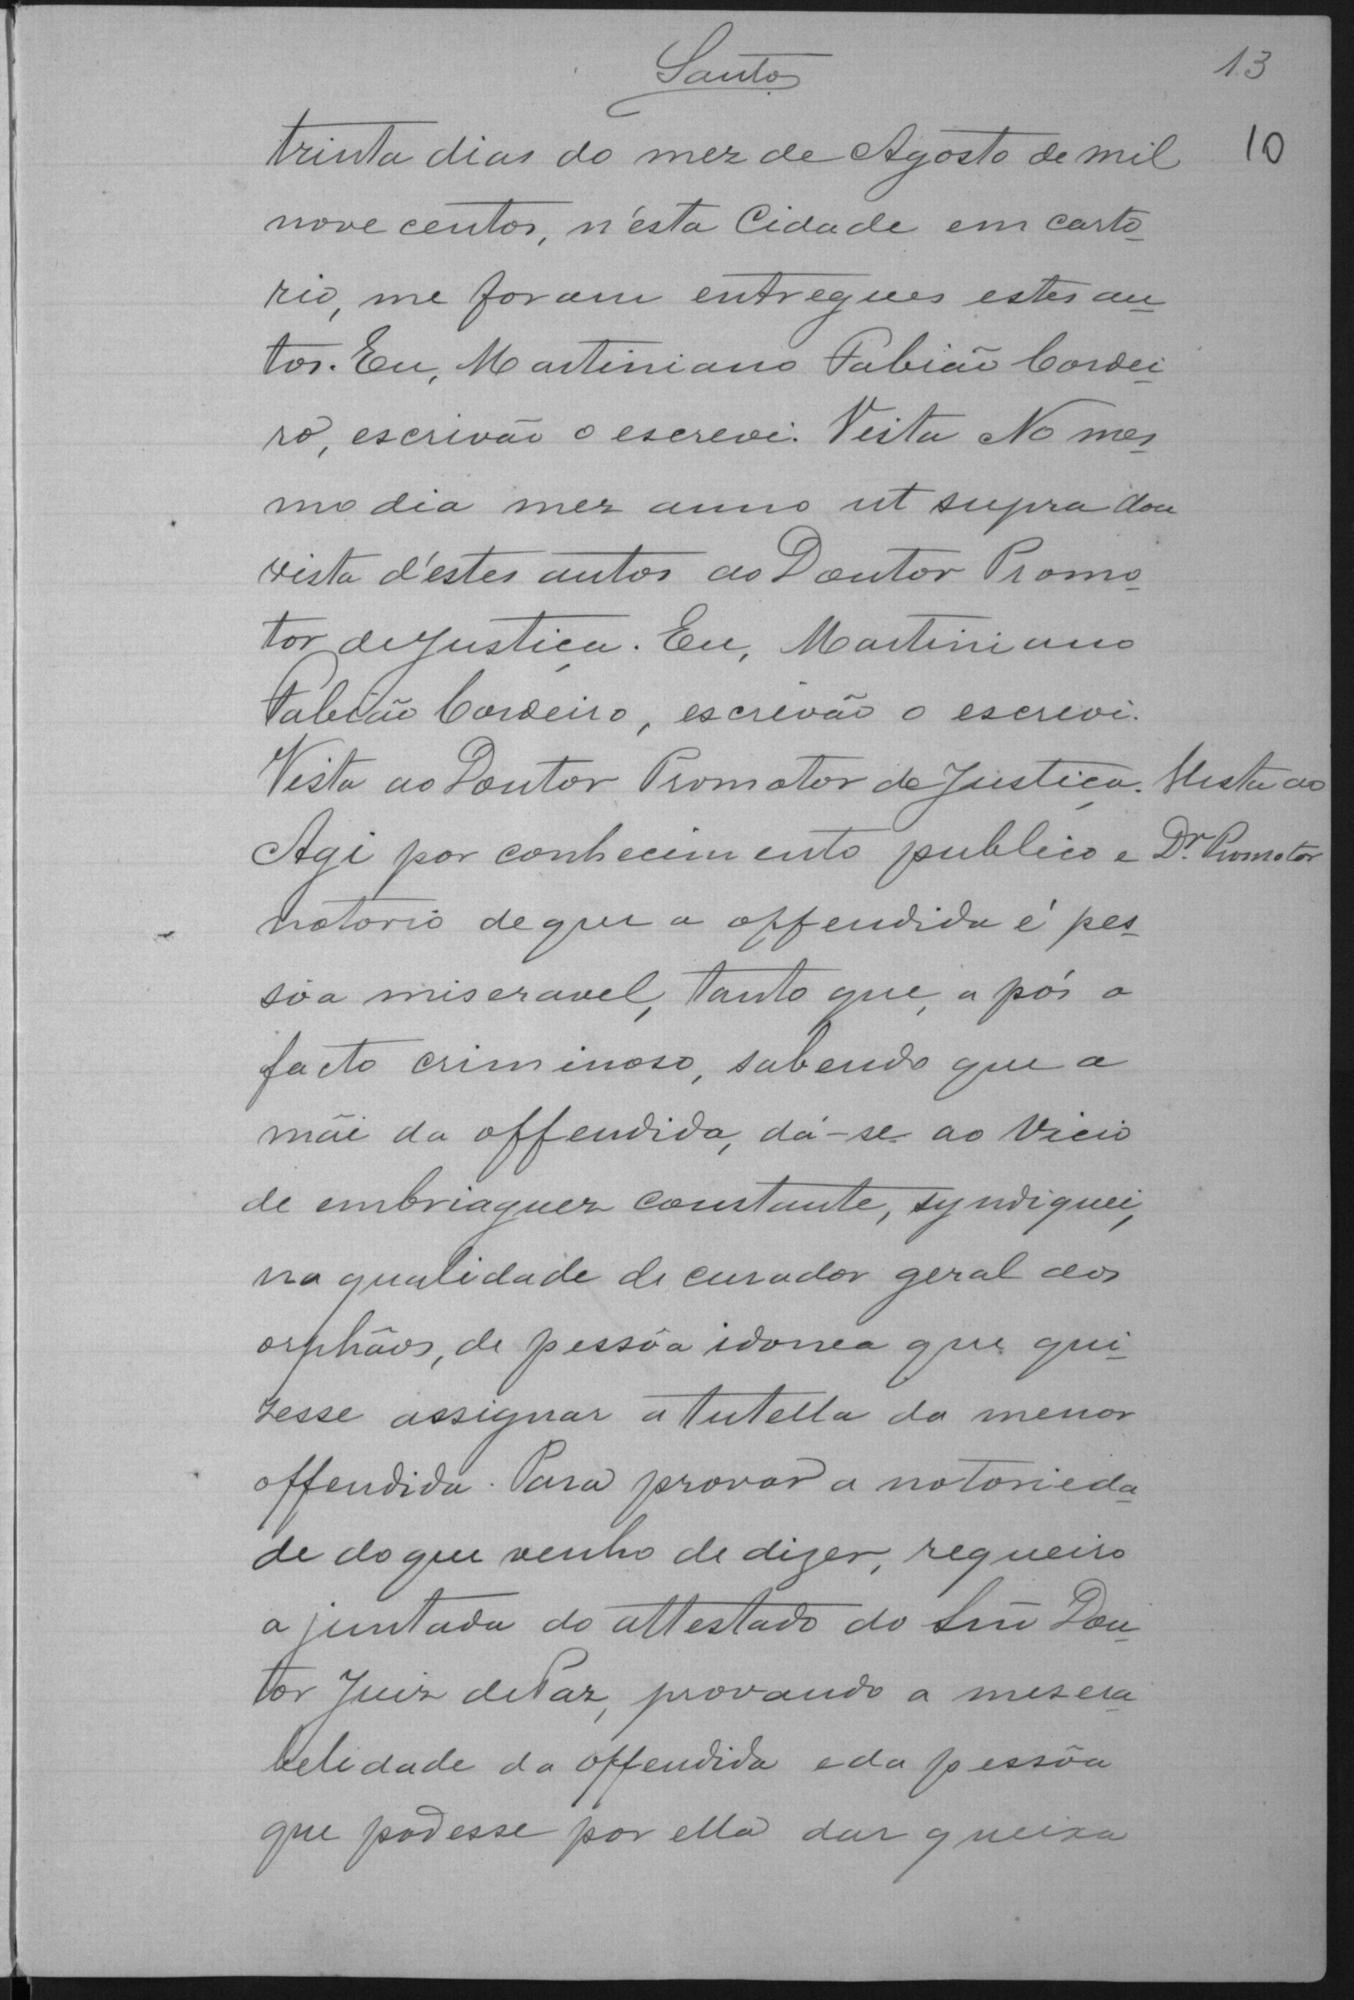 Santos
13
10
trinta dias do mez de Agosto de mil
nove centos, n'esta Cidade em carto-
rio, me foram entregues estes au-
tos. Eu, Martiniano Fabião Cordei-
ro, escrivão o escrevi. Vista No mes-
mo dia mez anno ut supra dou
vista d'estes autos ao Doutor Promo-
tor de Justiça. Eu, Martiniano
Fabião Cordeiro, escrivão o escrevi.
Vista ao Doutor Promotor de Justiça.
Vista ao
Dr. Promotor
Agi por conhecimento publico e
notorio de que a offendida é pes-
sôa miseravel, tanto que, a pós o
facto criminoso, sabendo que a
mãi da offendida, dá-se ao vicio
de embriaguez constante, syndiquei,
na qualidade de curador geral dos
orphãos, de pessôa idonea que qui-
zesse assignar a tutella da menor
offendida. Para provar a notorieda-
de do que venho de dizer, requeiro
a juntada do attestado do Snr Dou-
tor Juiz de Paz, provando a mesera-
belidade da offendida e da pessôa
que podesse por ella dar queixa